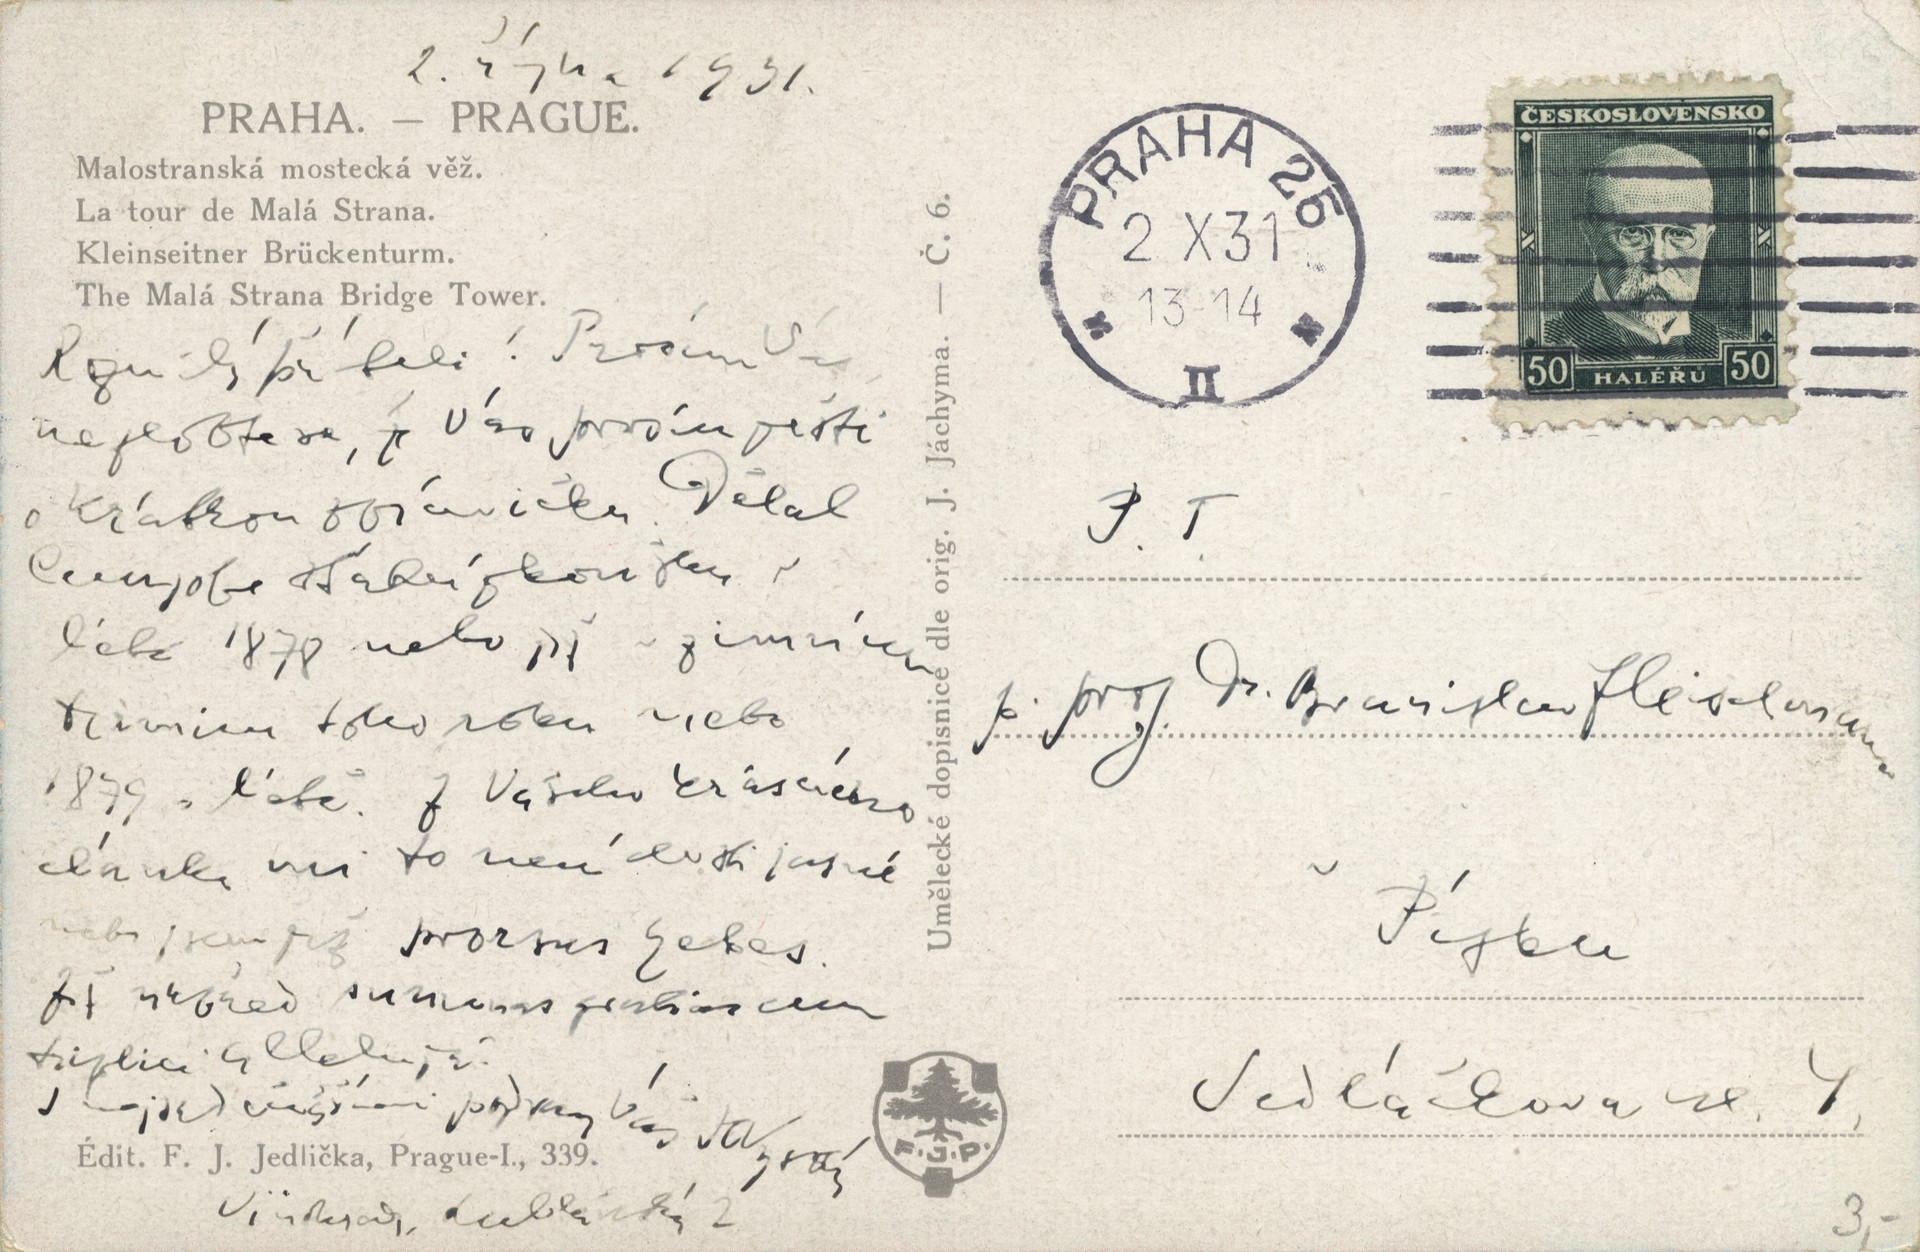 2. října 1931.
PRAHA. — PRAGUE.
Malostranská mostecká věž.
La tour de Malá Strana.
Kleinseitner Brückenturm.
The Malá Strana Bridge Tower.
příteli! Prosím Vás,
nezlobte se, že Vás prosím ještě
o krátkou zprávičku. Dělal
v
létě 1878 nebo již v zimním
termínu toho roku nebo
1879 v létě. Z Vašeho krásného
článku mi to není dosti jasné
nebo jsem již prorsus hebes.
Již napřed summas gratias cum
triplici Alleluja!
S pozdravy Váš
Vinohrady, Lublaňská 2
Édit. F. J. Jedlička, Prague-I., 339.
Umělecké dopisnice dle orig. J. Jáchyma. — Č. 6.
F.J.P.
PRAHA 25
2 X 31
13-14
II
ČESKOSLOVENSKO
50 HALÉŘŮ 50
P. T.
p. prof. Dr. Branislav
v Písku
Sedláčkova ul. 4,
3,-